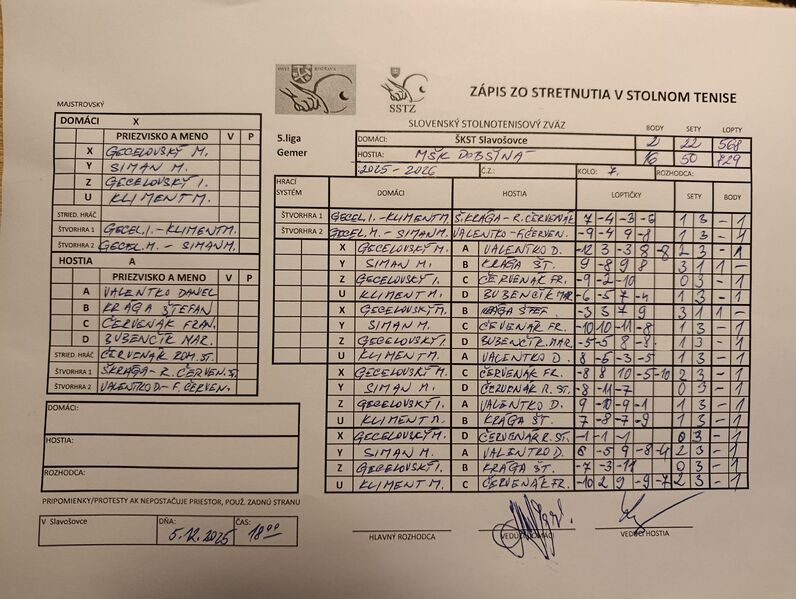 ZÁPIS ZO STRETNUTIA V STOLNOM TENISE
SSTZ
SLOVENSKÝ STOLNOTENISOVÝ ZVÄZ
MAJSTROVSKÝ
DOMÁCI X
PRIEZVISKO A MENO V P
X GECELOVSKÝ M.
Y SIMAN M.
Z GECELOVSKÝ I.
U KLIMENT M.
STRIED. HRÁČ
ŠTVORHRA 1 GECEL. I. - KLIMENT M.
ŠTVORHRA 2 GECEL. M. - SIMAN M.
HOSTIA A
PRIEZVISKO A MENO V P
A VALENTKO DANIEL
B KRÁGA ŠTEFAN
C ČERVENÁK FRAN.
D BUBENČÍK MAR.
STRIED. HRÁČ ČERVENÁK ROM. ST.
ŠTVORHRA 1 Š.KRÁGA - R. ČERVEN. ST.
ŠTVORHRA 2 VALENTKO D. - F. ČERVEN.
DOMÁCI:
HOSTIA:
ROZHODCA:
PRIPOMIENKY/PROTESTY AK NEPOSTAČUJE PRIESTOR, POUŽ. ZADNÚ STRANU
V Slavošovce DŇA: 5.12.2025 ČAS: 18 00
5.liga
Gemer
BODY SETY LOPTY
DOMÁCI: ŠKST Slavošovce 2 22 568
HOSTIA: MŠK DOBŠINÁ 16 50 729
2025 - 2026 Č.Z.: KOLO: 7. ROZHODCA:
HRACÍ SYSTÉM DOMÁCI HOSTIA LOPTIČKY SETY BODY
ŠTVORHRA 1 GECEL. I. - KLIMENT M. Š. KRÁGA - R. ČERVENÁK 7 -4 -3 -6 1 3 - 1
ŠTVORHRA 2 GECEL. M. - SIMAN M. VALENTKO - F. ČERVEN. -9 -4 9 -8 1 3 - 1
X GECELOVSKÝ M. A VALENTKO D. -12 3 -3 8 -8 2 3 - 1
Y SIMAN M. B KRÁGA ŠT. 9 -8 9 8 3 1 1 -
Z GECELOVSKÝ I. C ČERVENÁK FR. -9 -2 -10 0 3 - 1
U KLIMENT M. D BUBENČÍK MAR. -6 -5 7 -4 1 3 - 1
X GECELOVSKÝ M. B KRÁGA ŠTEF. -3 3 7 9 3 1 1 -
Y SIMAN M. C ČERVENÁK FR. -10 10 -11 -8 1 3 - 1
Z GECELOVSKÝ I. D BUBENČÍK MAR. -5 -5 8 -8 1 3 - 1
U KLIMENT M. A VALENTKO D. 8 -6 -3 -5 1 3 - 1
X GECELOVSKÝ M. C ČERVENÁK FR. -8 8 10 -5 -10 2 3 - 1
Y SIMAN M. D ČERVENÁK R. ST. -8 -11 -7 0 3 - 1
Z GECELOVSKÝ I. A VALENTKO D. 9 -10 -9 -1 1 3 - 1
U KLIMENT M. B KRÁGA ŠT. 7 -8 -7 -9 1 3 - 1
X GECELOVSKÝ M. D ČERVENÁK R. ST. -1 -1 -1 0 3 - 1
Y SIMAN M. A VALENTKO D. 6 -5 9 -8 -4 2 3 - 1
Z GECELOVSKÝ I. B KRÁGA ŠT. -7 -3 -11 0 3 - 1
U KLIMENT M. C ČERVENÁK FR. -10 2 9 -9 -7 2 3 - 1
HLAVNÝ ROZHODCA VEDÚCI DOMÁCI VEDÚCI HOSTIA